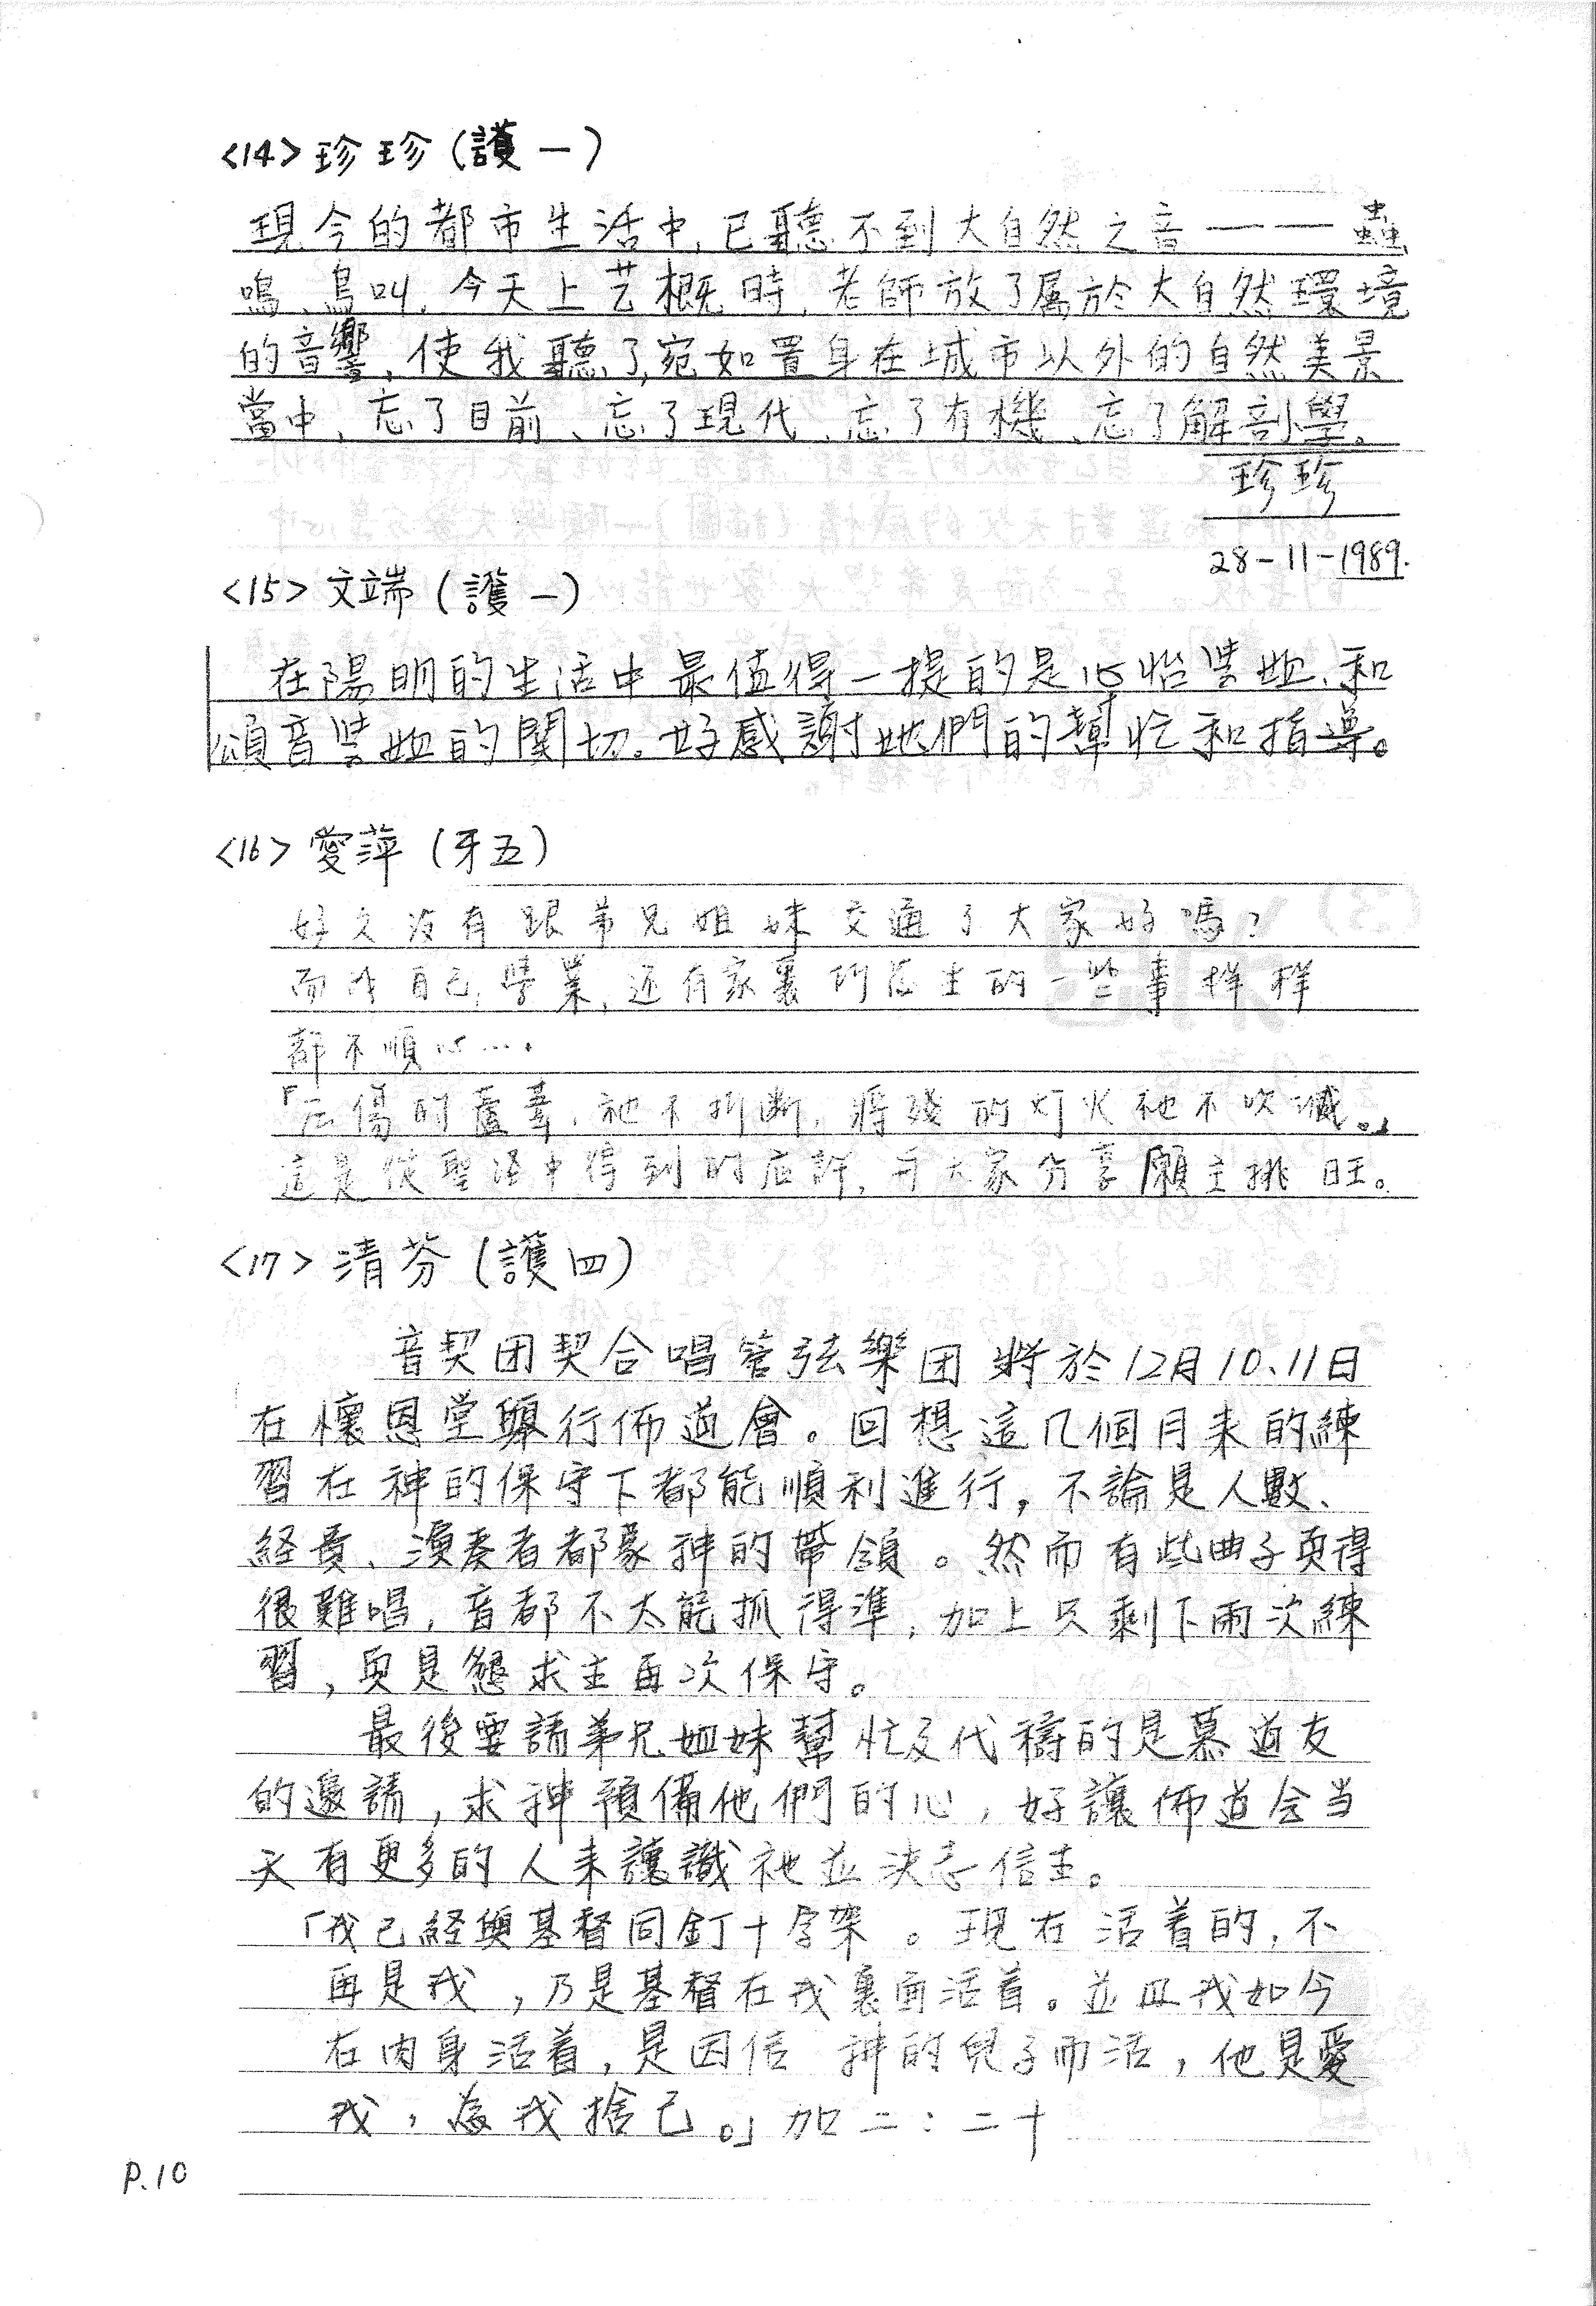 <14> 珍珍(護一)
現今的都市生活中,已聽不到大自然之音——蟲
鳴、鳥叫,今天上艺概時,老師放了屬於大自然環境
的音響,使我聽了,宛如置身在城市以外的自然美景
當中、忘了目前、忘了現代、忘了有機、忘了解剖學。
珍珍
28-11-1989.
<15> 文端(護一)
在陽明的生活中最值得一提的是心怡學姐、和
頌音學姐的関切。好感謝她們的幫忙和指導。
<16> 愛萍(牙五)
好久沒有跟弟兄姐妹交通了大家好嗎?
而我自己,學業,还有家裏所发生的一些事样样
都不順心….
「压傷的蘆葦,祂不折断,將殘的灯火祂不吹滅。」
這是從聖经中得到的应許,与大家分享願主挑旺。
<17> 清芬(護四)
音契团契合唱管弦樂团將於12月10、11日
在懷恩堂舉行佈道會。回想這几個月来的練
習在神的保守下都能順利進行,不論是人數、
経費、演奏者都蒙神的帶領。然而有些曲子真得
很難唱,音都不太能抓得準,加上只剩下兩次練
習,真是懇求主再次保守。
最後要請弟兄姐妹幫忙及代禱的是慕道友
的邀請,求神預備他們的心,好讓佈道会当
天有更多的人来認識祂並決志信主。
「我已経與基督同釘十字架。現在活着的,不
再是我,乃是基督在我裏面活着。並且我如今
在肉身活着,是因信 神的兒子而活,他是愛
我,為我捨己。」加二:二十
P.10